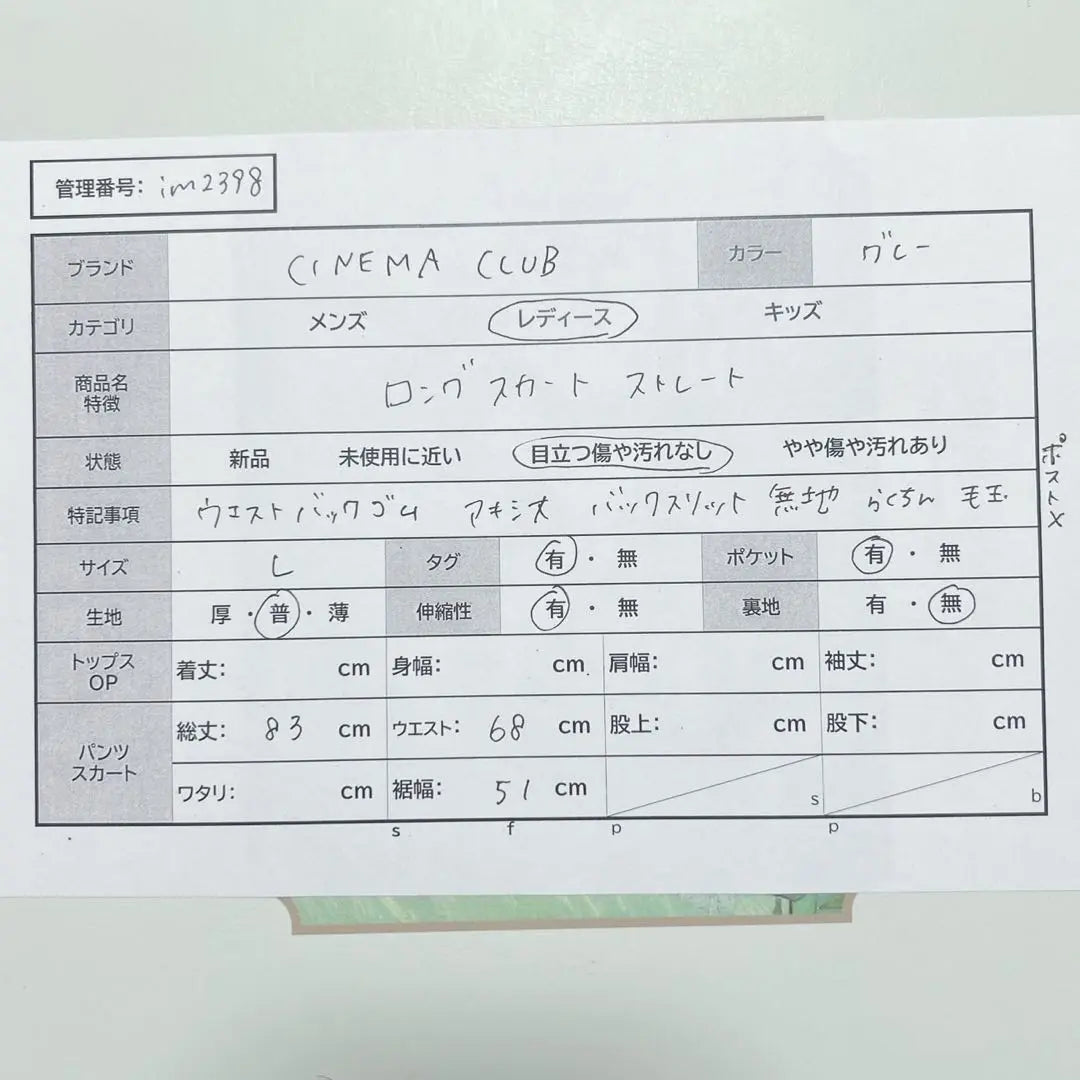 管理番号: im2398
ブランド CINEMA CLUB カラー グレー
カテゴリ メンズ レディース キッズ
商品名
特徴 ロングスカート ストレート
状態 新品 未使用に近い 目立つ傷や汚れなし やや傷や汚れあり
特記事項 ウエストバックゴム アキシオ バックスリット 無地 らくちん 毛玉
ポストX
サイズ L タグ 有・無 ポケット 有・無
生地 厚・普・薄 伸縮性 有・無 裏地 有・無
トップス
OP 着丈: cm 身幅: cm 肩幅: cm 袖丈: cm
パンツ
スカート 総丈: 83 cm ウエスト: 68 cm 股上: cm 股下: cm
ワタリ: cm 裾幅: 51 cm s b
s f p p